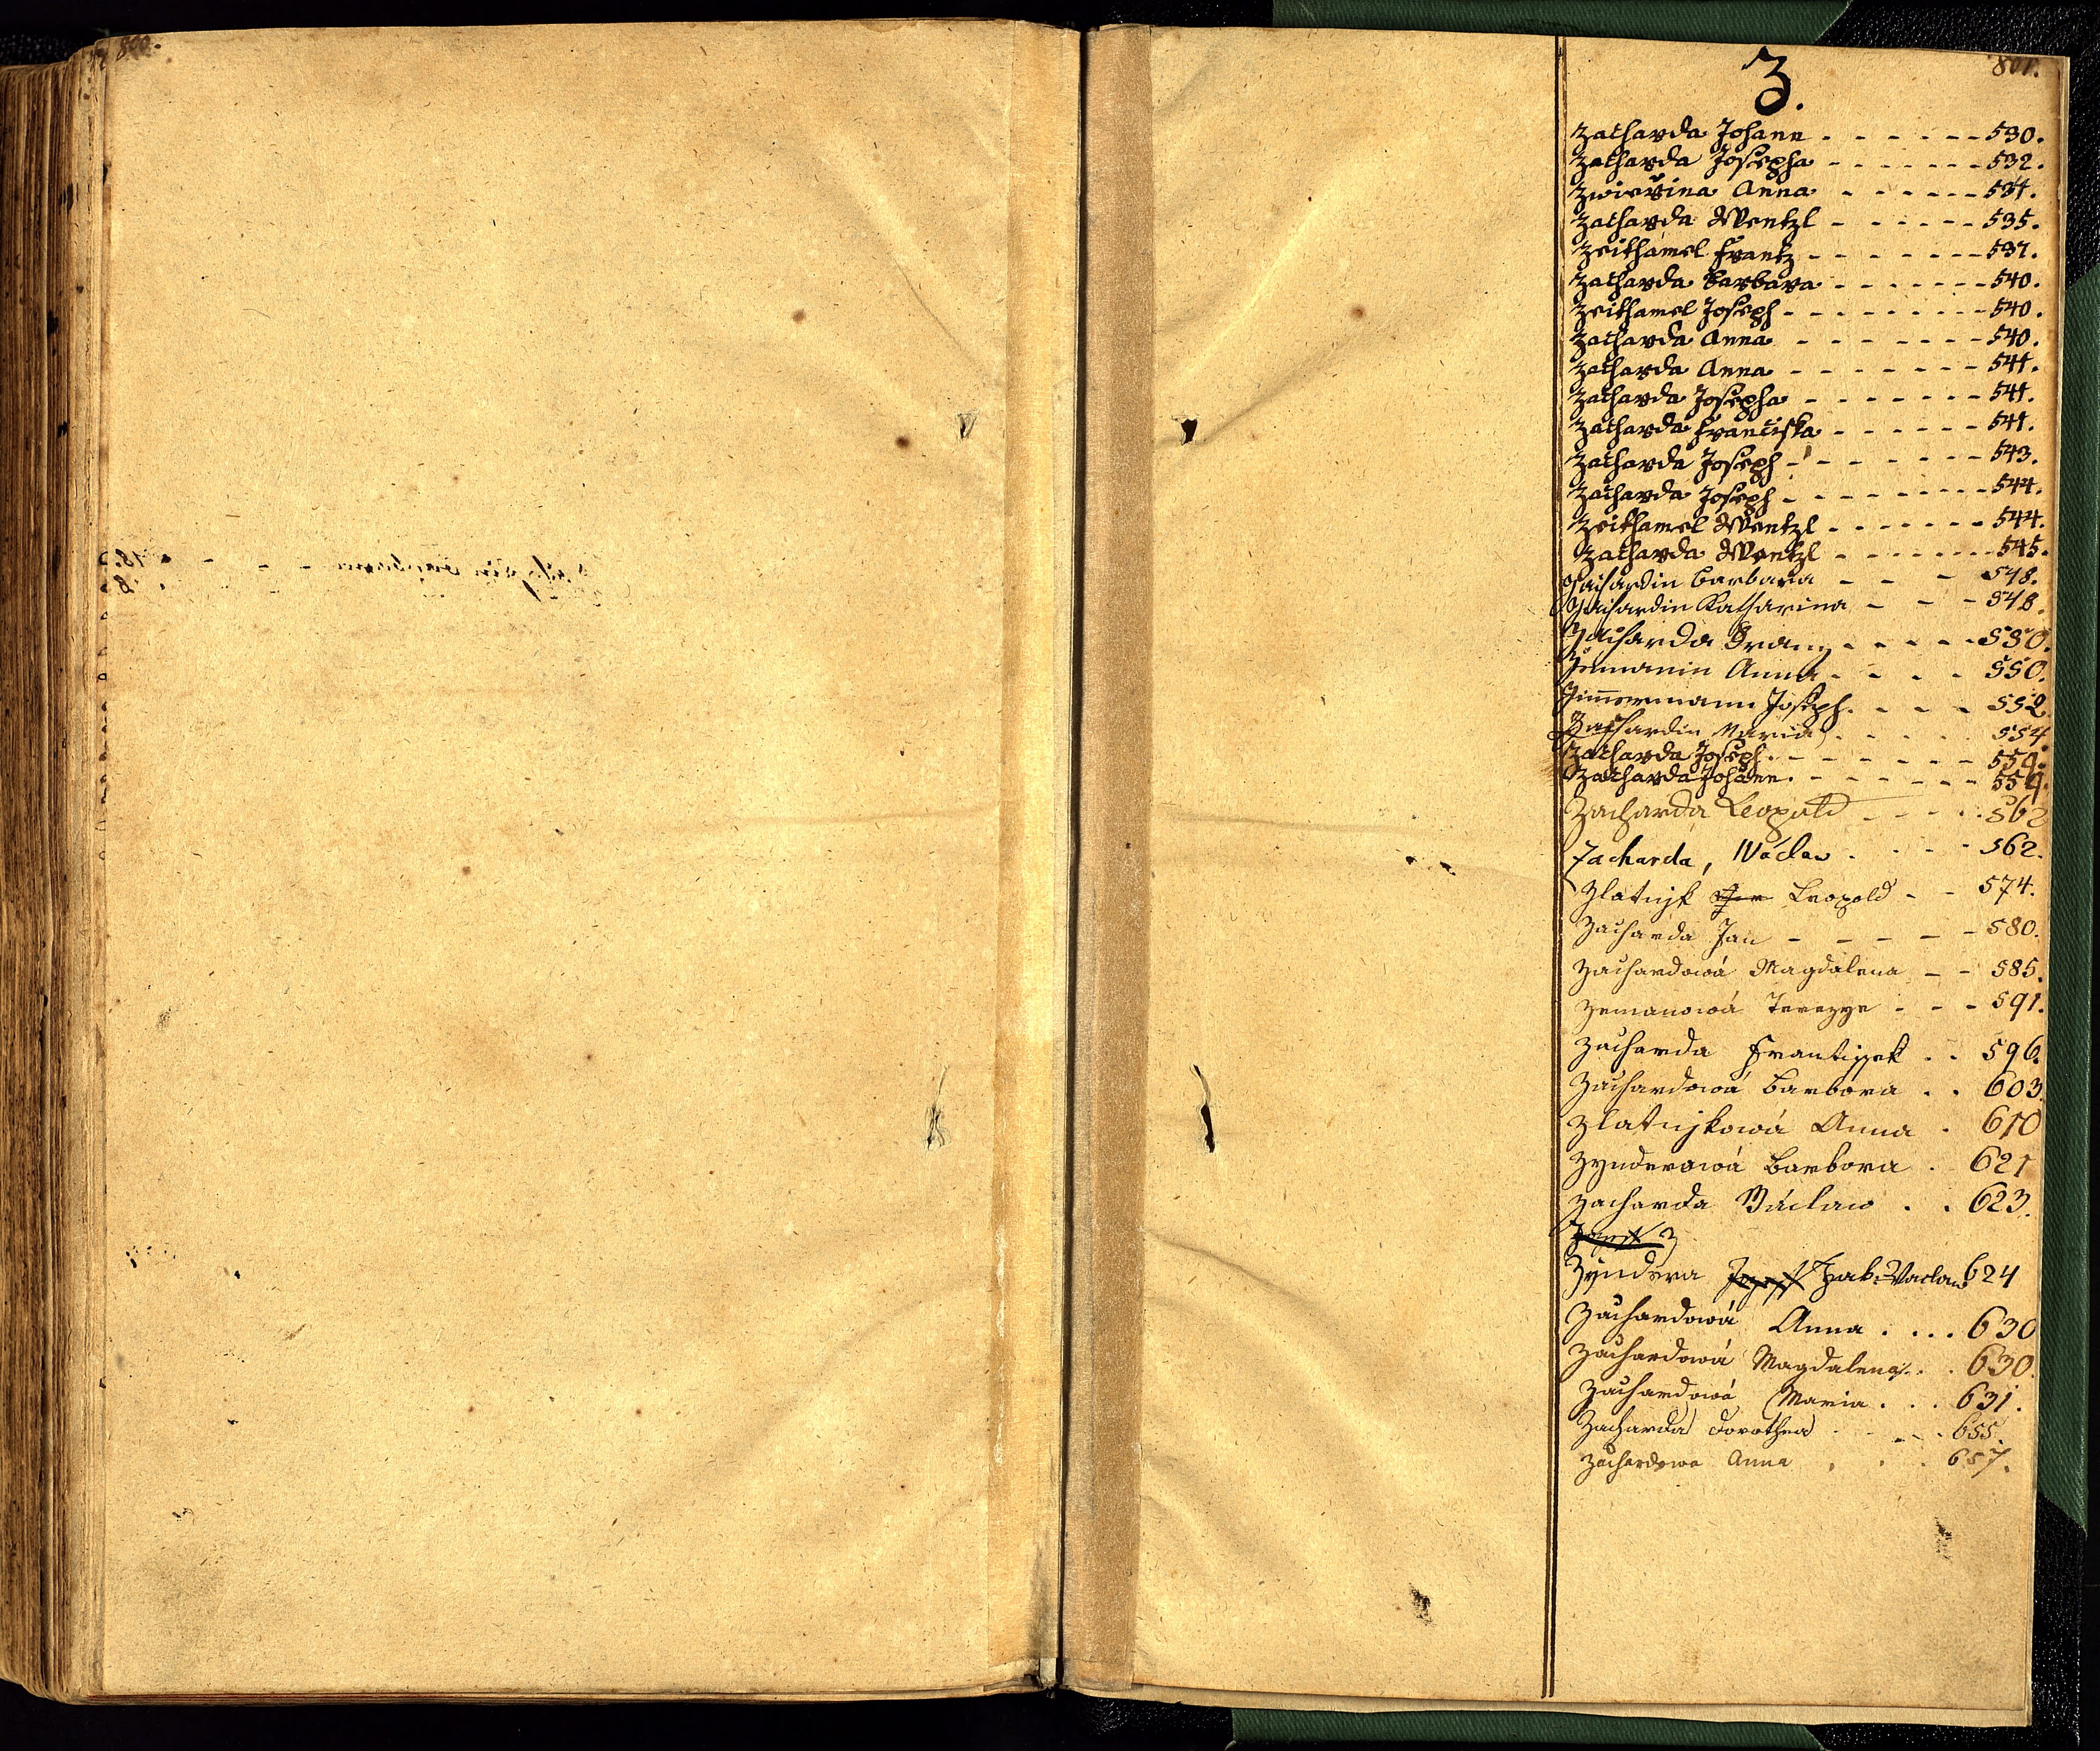 800.
801.
Z.
Zacharda Johann - - - - - - 530.
Zacharda Josepha - - - - - - - 532.
Zwieřina Anna - - - - - - 534.
Zacharda Wentzl - - - - - - 535.
Zeithamel Frantz - - - - - - - 537.
Zacharda Barbara - - - - - - - 540.
Zeithamel Joseph - - - - - - - - - 540.
Zacharda Anna - - - - - - - 540.
Zacharda Anna - - - - - - - 541.
Zacharda Josepha - - - - - - - 541.
Zacharda Franciska - - - - - - 541.
Zacharda Joseph - - - - - - - 543.
Zacharda Joseph - - - - - - - - - 544.
Zeithamel Wentzl - - - - - - - 544.
Zacharda Wentzl - - - - - - - 545.
Zachardin Barbara - - - 548.
Zachardin Katharina - - - 548.
Zacharda Franz - - - - - 550.
Zemanin Anna - - - - 550.
Zimmermann Joseph. - - - 552
Zachardin Maria . . . . . 554.
Zacharda Joseph. - - - - - - - 559.
Zacharda Johann. - - - - - - 559.
Zacharda Leopold - - - - . 562
Zacharda, Wáclaw . . - - 562.
Zlatnjk Leopold - - 574.
Zacharda Jan - - - - - 580.
Zachardowá Magdalena - - 585.
Zemanowá Terezye - - - 591.
Zacharda Frantissek . . 596.
Zachardowá Barbora . . 603.
Zlatnjkowá Anna . 610
Zynderowá Barbora . 621
Zacharda Václaw . . 623.
Zyndera Jak. Vaclaw 624
Zachardowá Anna . . . . 630
Zachardowá Magdalena . . . 630.
Zachardowá Maria . . . 631.
Zacharda Dorothea . . . . 655.
Zachardowa Anna . . . 657.